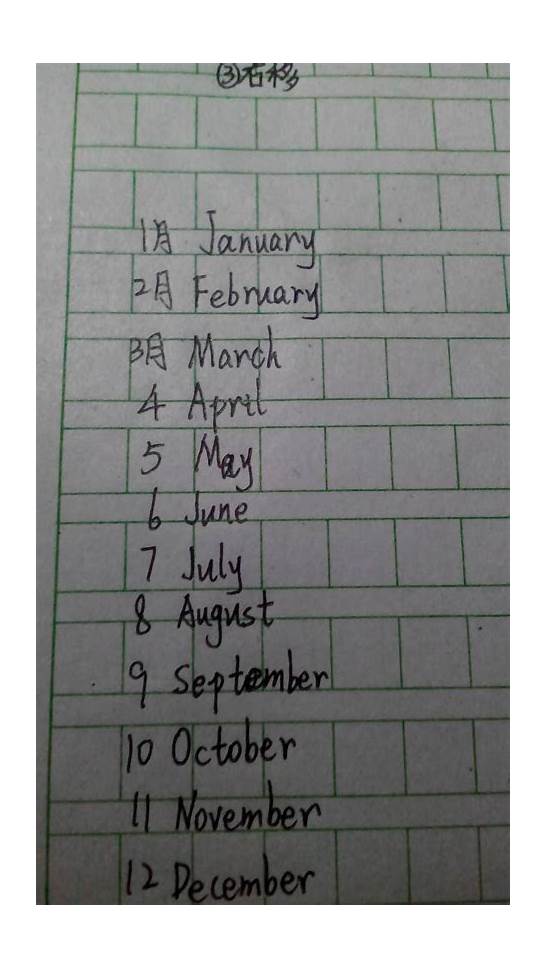 ③右移
1月 January
2月 February
3月 March
4 April
5 May
6 June
7 July
8 August
9 September
10 October
11 November
12 December